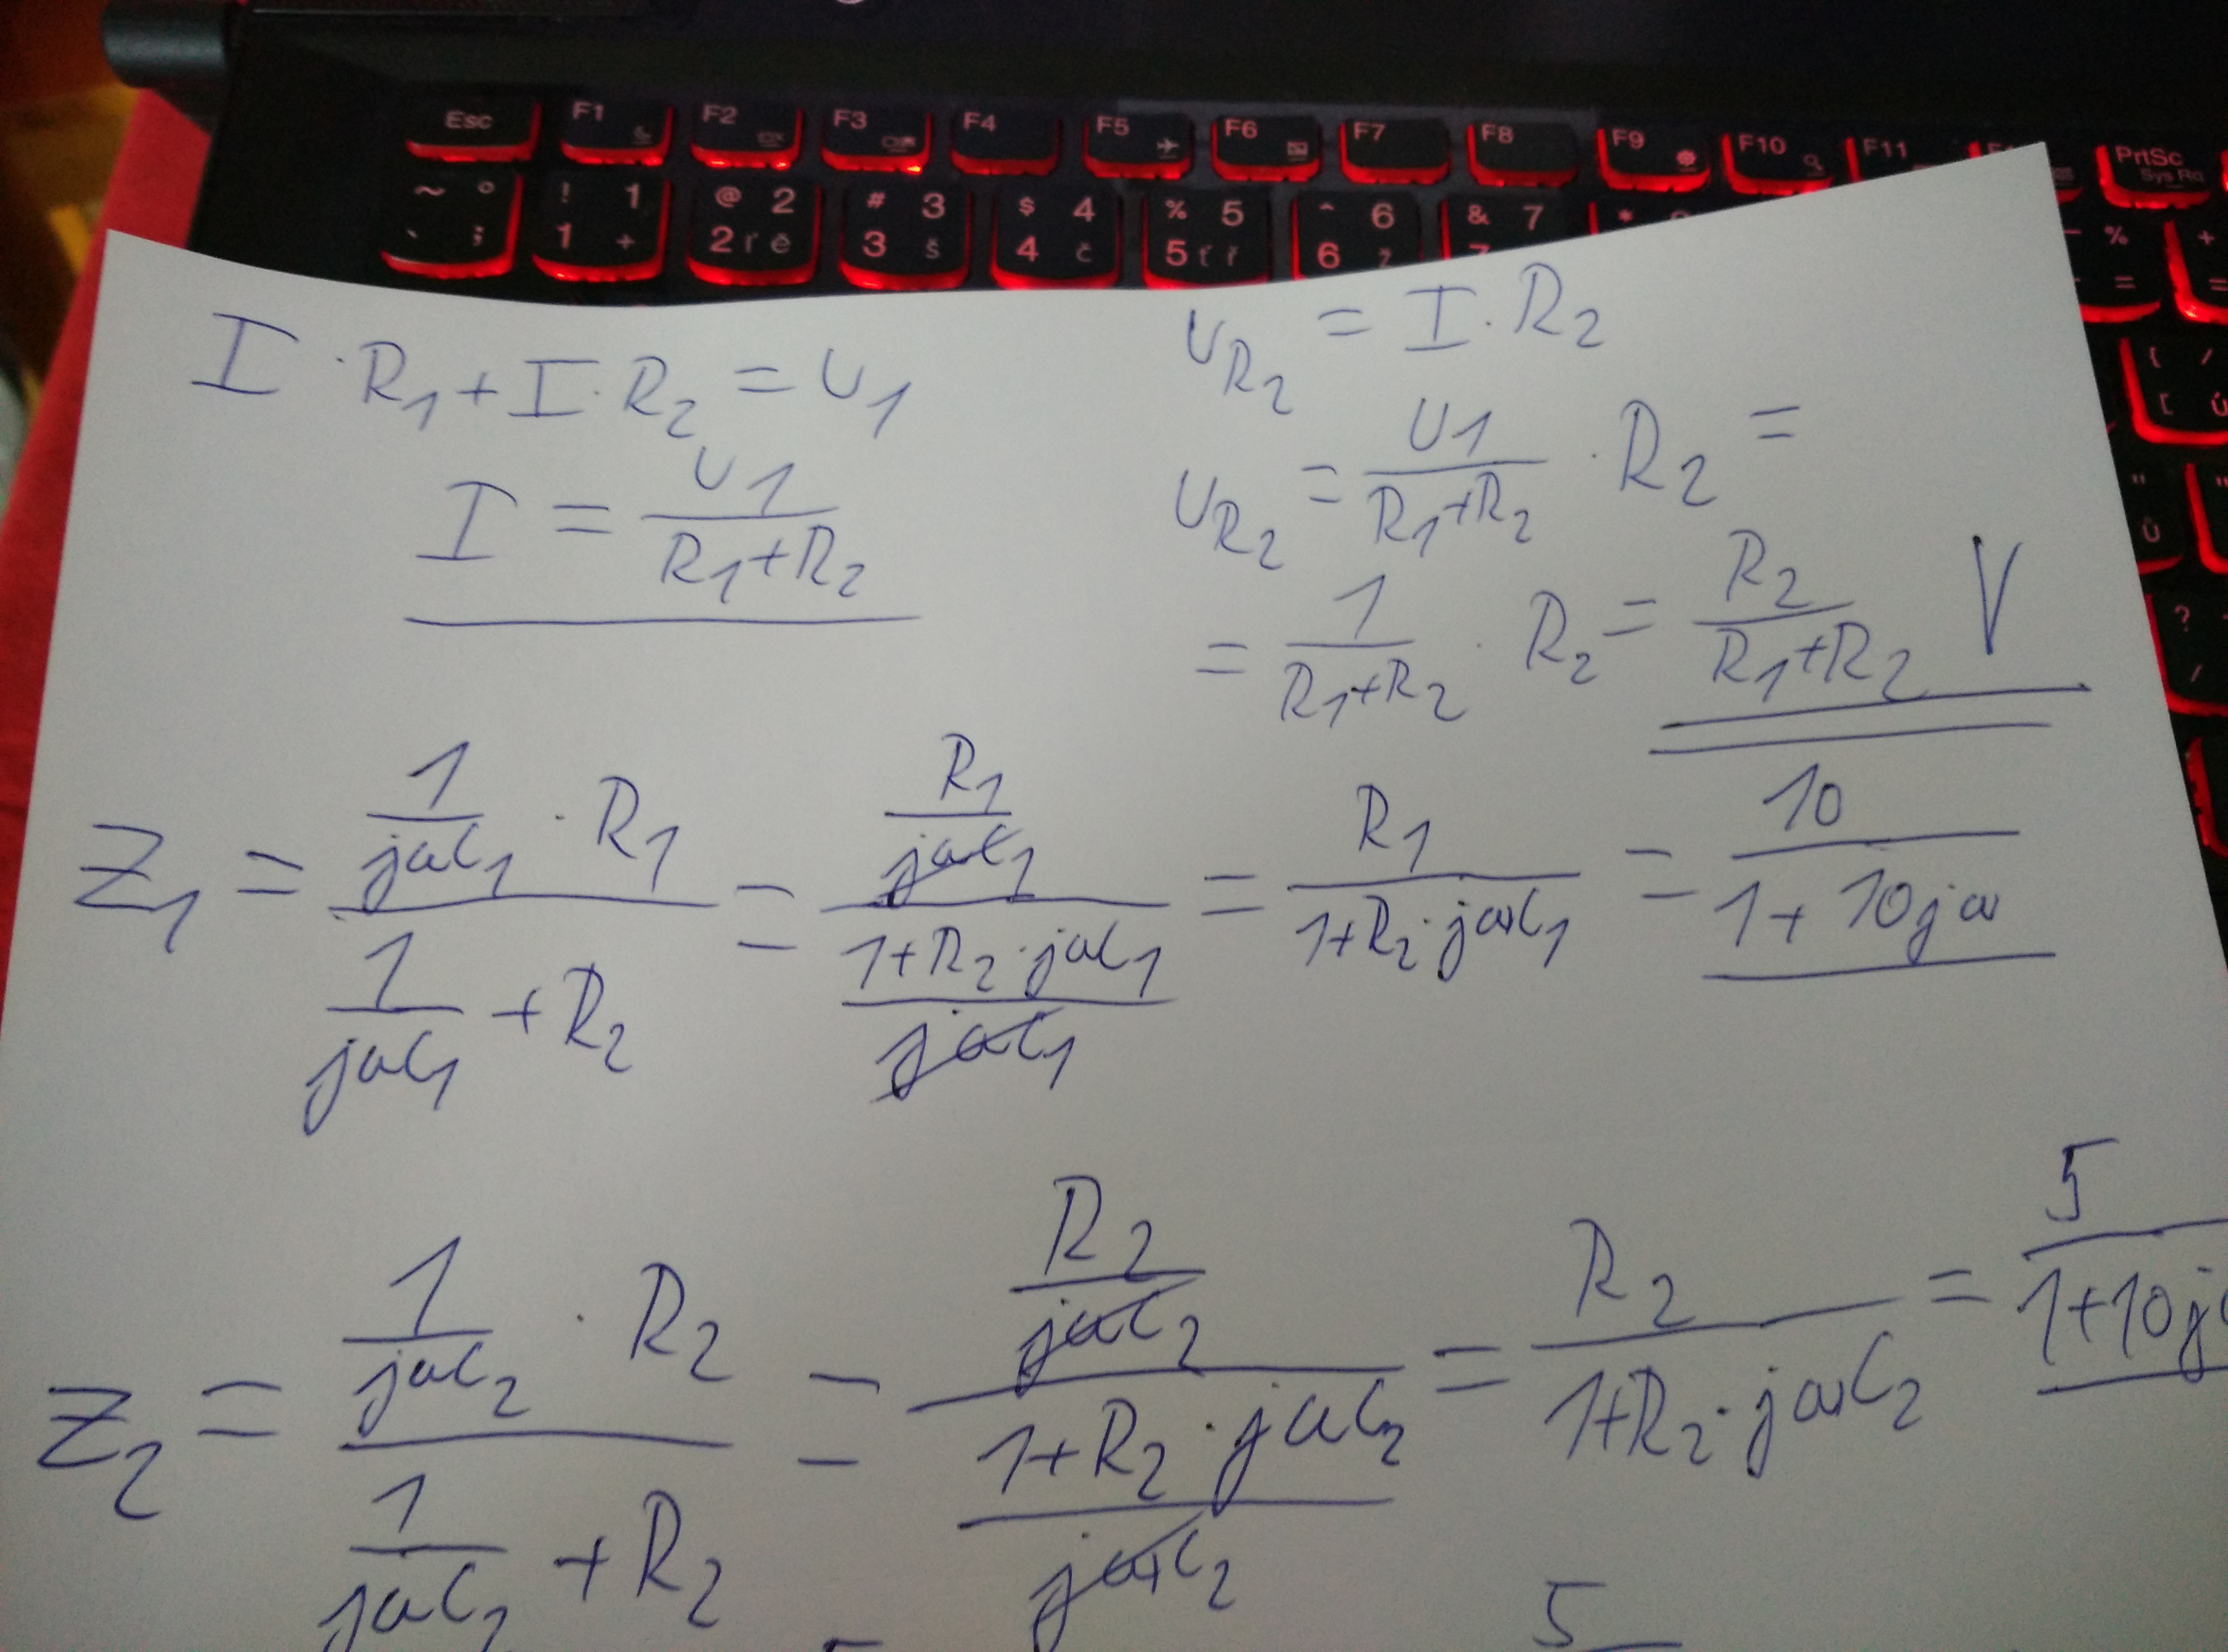 Esc F1 F2 F3 F4 F5 F6 F7 F8 F9 F10 F11 PrtSc
Sys Rq
~ ° ! 1 @ 2 # 3 $ 4 % 5 ^ 6 & 7 * % +
` ; 1 + 2 ľ ě 3 š 4 č 5 ť ř 6 ž = =
{ /
[ ú
" "
ů
?
/
I · R₁ + I · R₂ = U₁
I = U1 / (R₁+R₂)
U_R₂ = I · R₂
U_R₂ = U1 / (R₁+R₂) · R₂ =
= 1 / (R₁+R₂) · R₂ = R₂ / (R₁+R₂) V
Z₁ = (1/(jωC₁) · R₁) / (1/(jωC₁) + R₂) = (R₁/(jωC₁)) / ((1+R₂·jωC₁)/(jωC₁)) = R₁ / (1+R₂·jωC₁) = 10 / (1+10jω)
Z₂ = (1/(jωC₂) · R₂) / (1/(jωC₂) + R₂) = (R₂/(jωC₂)) / ((1+R₂·jωC₂)/(jωC₂)) = R₂ / (1+R₂·jωC₂) = 5 / (1+10j
5